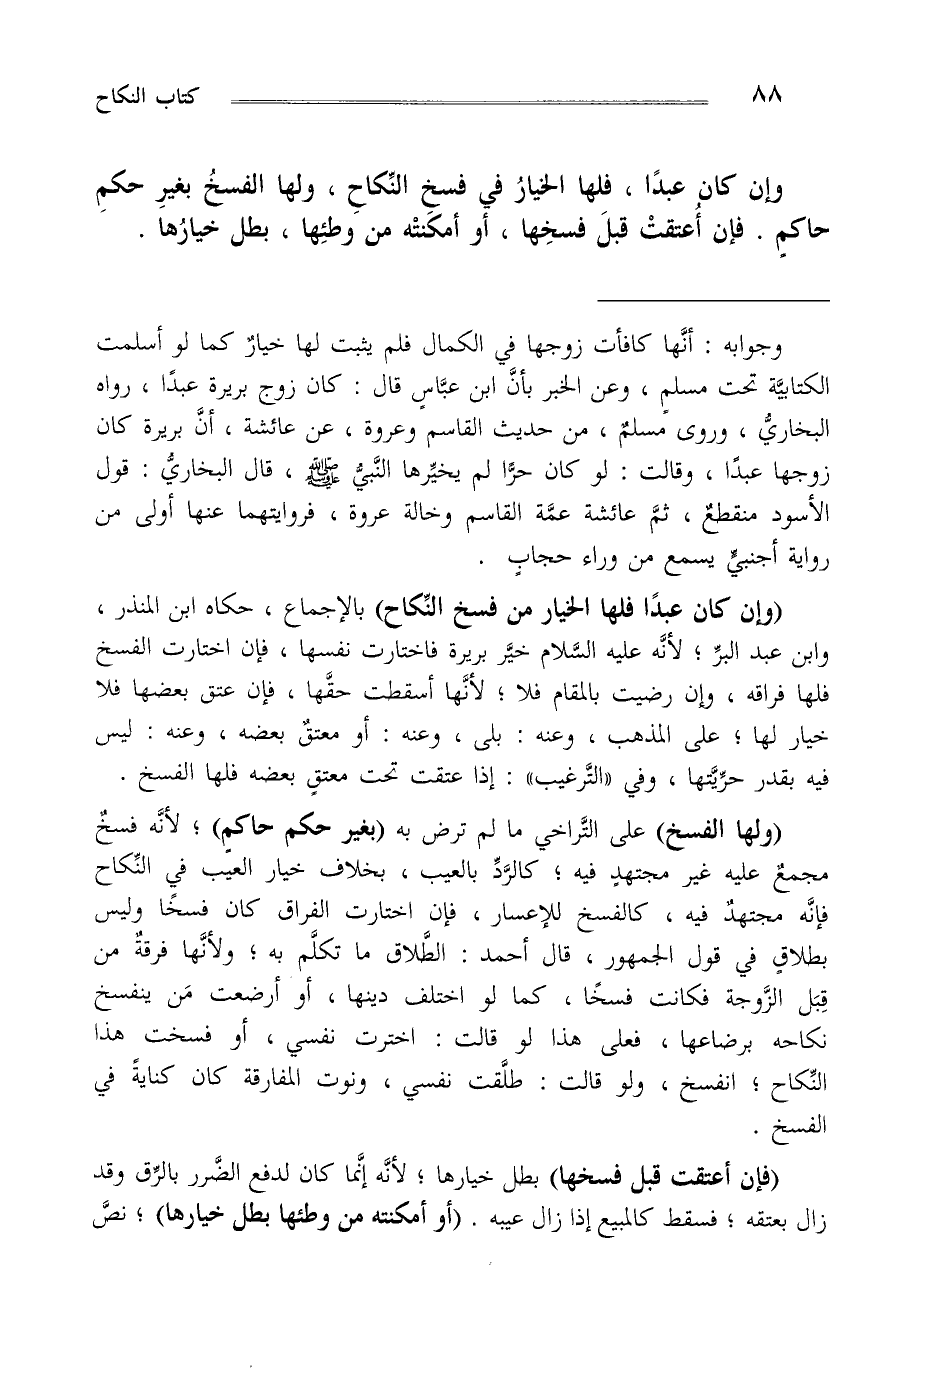 ٨٨ كتاب النكاح
وإن كان عبدًا ، فلها الخيارُ في فسخِ النِّكاحِ ، ولها الفسخُ بغيرِ حكمِ
حاكمٍ . فإن أُعتقتْ قبلَ فسخِها ، أو أمكَنتْه من وطئِها ، بطل خيارُها .
وجوابه : أنَّها كافأت زوجها في الكمال فلم يثبت لها خيارٌ كما لو أسلمت
الكتابيَّة تحت مسلمٍ ، وعن الخبر بأنَّ ابن عبَّاسٍ قال : كان زوج بريرة عبدًا ، رواه
البخاريُّ ، وروى مسلمٌ ، من حديث القاسم وعروة ، عن عائشة ، أنَّ بريرة كان
زوجها عبدًا ، وقالت : لو كان حرًّا لم يخيِّرها النَّبيُّ ﷺ ، قال البخاريُّ : قول
الأسود منقطعٌ ، ثمَّ عائشة عمَّة القاسم وخالة عروة ، فروايتهما عنها أولى من
رواية أجنبيٍّ يسمع من وراء حجابٍ .
(وإن كان عبدًا فلها الخيار من فسخ النِّكاح) بالإجماع ، حكاه ابن المنذر ،
وابن عبد البرِّ ؛ لأنَّه عليه السَّلام خيَّر بريرة فاختارت نفسها ، فإن اختارت الفسخ
فلها فراقه ، وإن رضيت بالمقام فلا ؛ لأنَّها أسقطت حقَّها ، فإن عتق بعضها فلا
خيار لها ؛ على المذهب ، وعنه : بلى ، وعنه : أو معتقٌ بعضه ، وعنه : ليس
فيه بقدر حرِّيَّتها ، وفي «التَّرغيب» : إذا عتقت تحت معتقٍ بعضه فلها الفسخ .
(ولها الفسخ) على التَّراخي ما لم ترض به (بغير حكم حاكمٍ) ؛ لأنَّه فسخٌ
مجمعٌ عليه غير مجتهدٍ فيه ؛ كالرَّدِّ بالعيب ، بخلاف خيار العيب في النِّكاح
فإنَّه مجتهدٌ فيه ، كالفسخ للإعسار ، فإن اختارت الفراق كان فسخًا وليس
بطلاقٍ في قول الجمهور ، قال أحمد : الطَّلاق ما تكلَّم به ؛ ولأنَّها فرقةٌ من
قِبَل الزَّوجة فكانت فسخًا ، كما لو اختلف دينها ، أو أرضعت مَن ينفسخ
نكاحه برضاعها ، فعلى هذا لو قالت : اخترت نفسي ، أو فسخت هذا
النِّكاح ؛ انفسخ ، ولو قالت : طلَّقت نفسي ، ونوت المفارقة كان كنايةً في
الفسخ .
(فإن أعتقت قبل فسخها) بطل خيارها ؛ لأنَّه إنَّما كان لدفع الضَّرر بالرِّق وقد
زال بعتقه ؛ فسقط كالمبيع إذا زال عيبه . (أو أمكنته من وطئها بطل خيارها) ؛ نصَّ